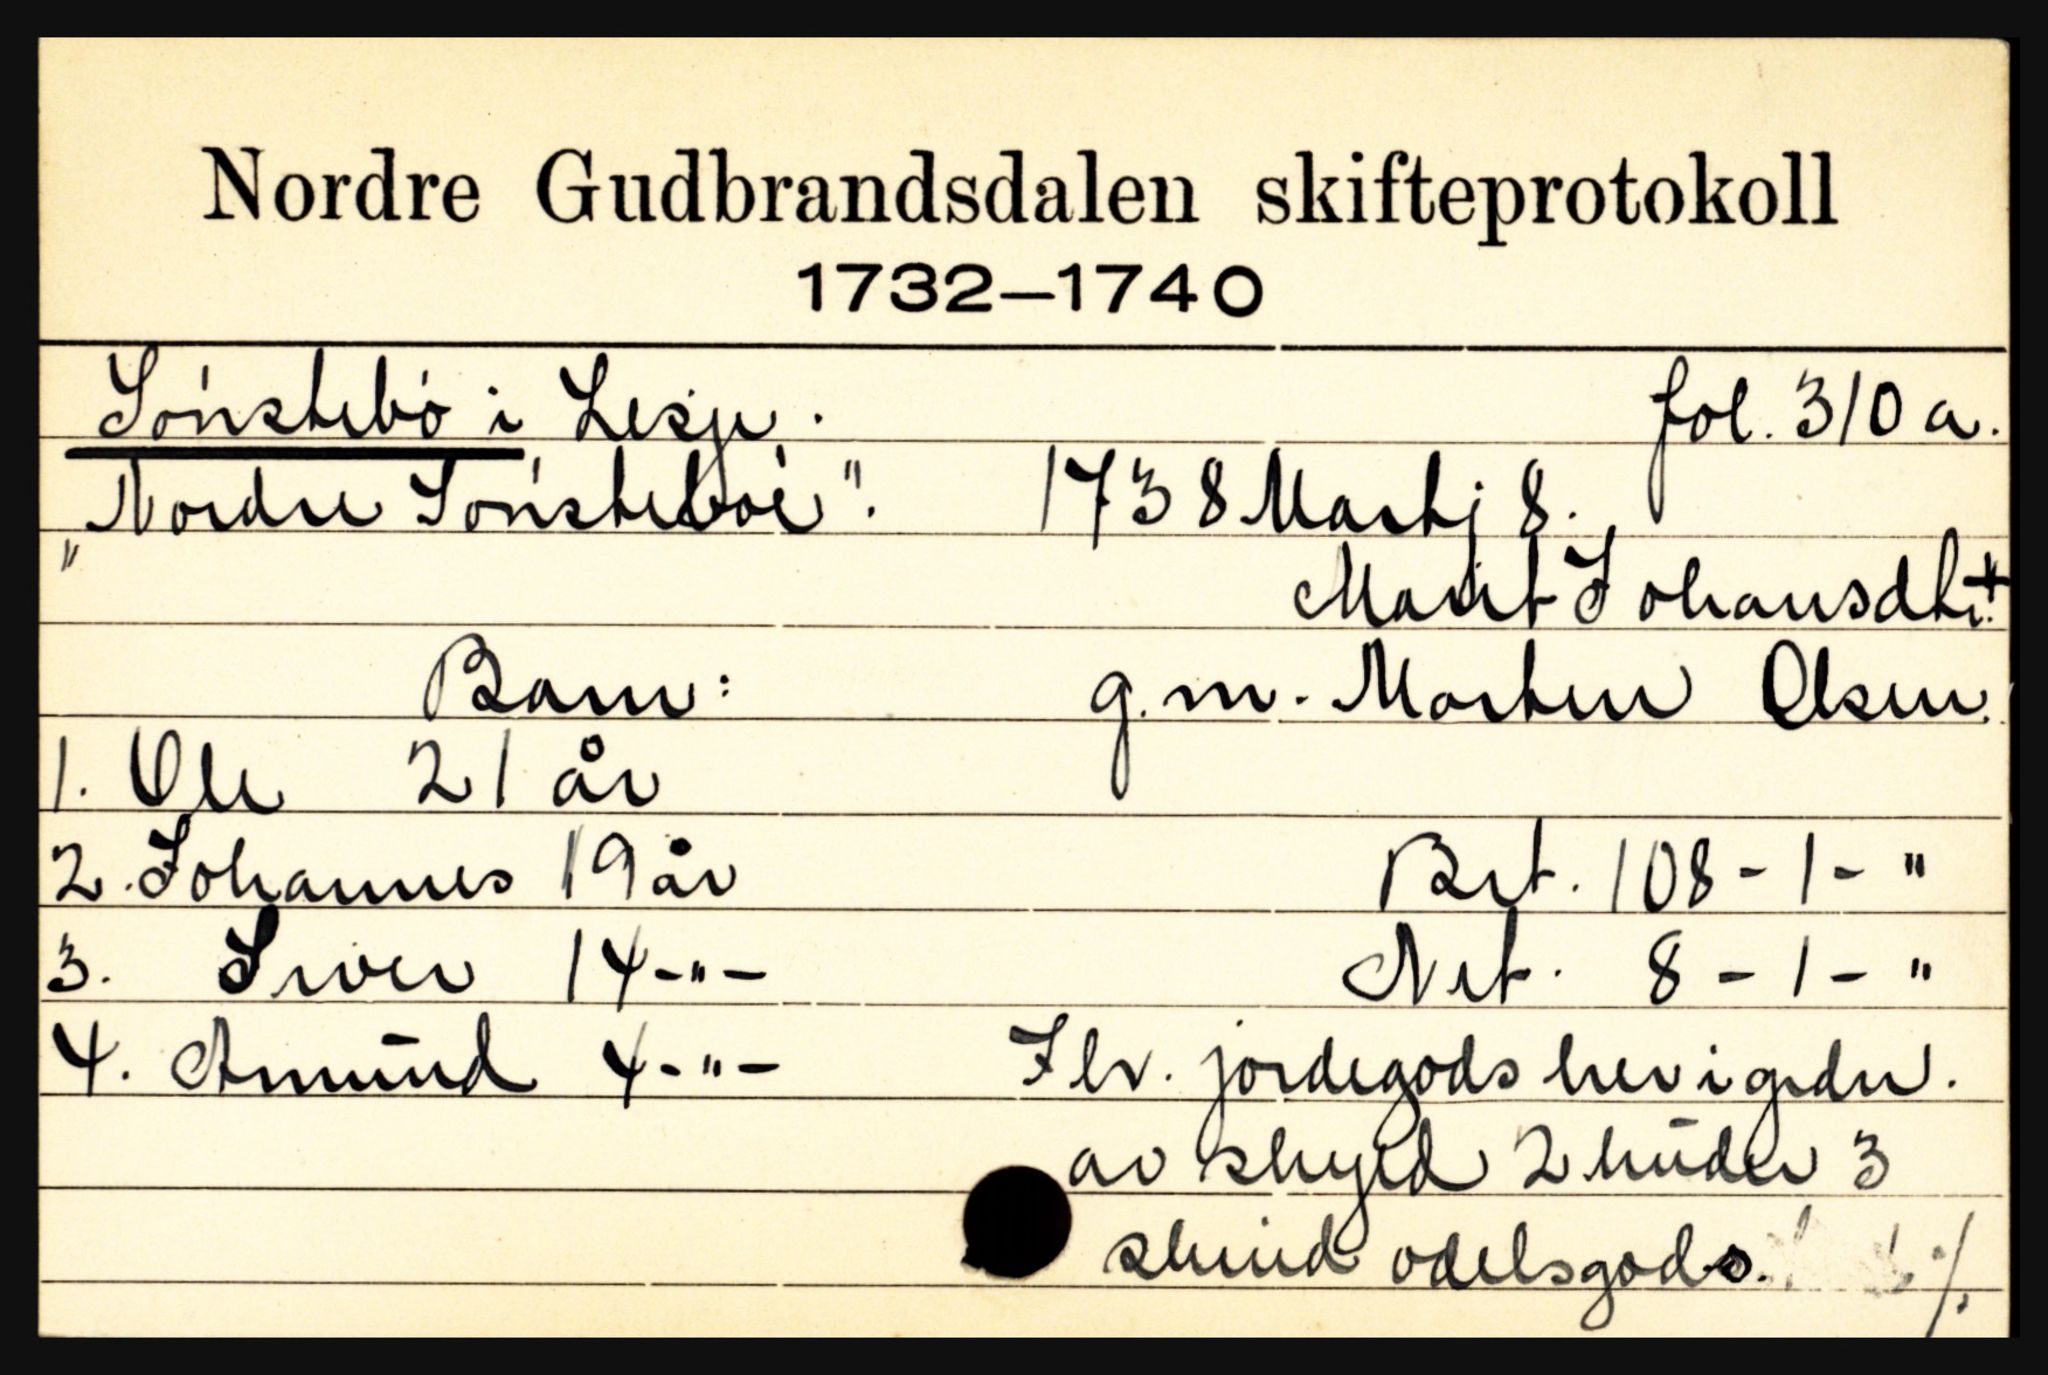 Nordre Gudbrandsdalen skifteprotokoll
1732–1740
Sønstebø i Lesje. fol. 310 a.
"Nordre Sønsteboe". 1738 Martj 8.
Marit Johansdtr. +
Barn: g.m. Morten Olsen.
1. Ole 21 år
2. Johannes 19 år Brt. 108 - 1 - "
3. Iver 14 - " - Net. 8 - 1 - "
4. Amund 4 - " - Flv. jordegods her i grdn.
av skyld 2 huder 3
skind odelsgods. ·/.